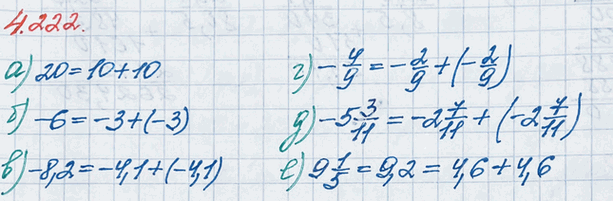 4.222.
а) 20 = 10 + 10
б) -6 = -3 + (-3)
в) -8,2 = -4,1 + (-4,1)
г) -4/9 = -2/9 + (-2/9)
д) -5 3/11 = -2 7/11 + (-2 7/11)
е) 9 1/5 = 9,2 = 4,6 + 4,6